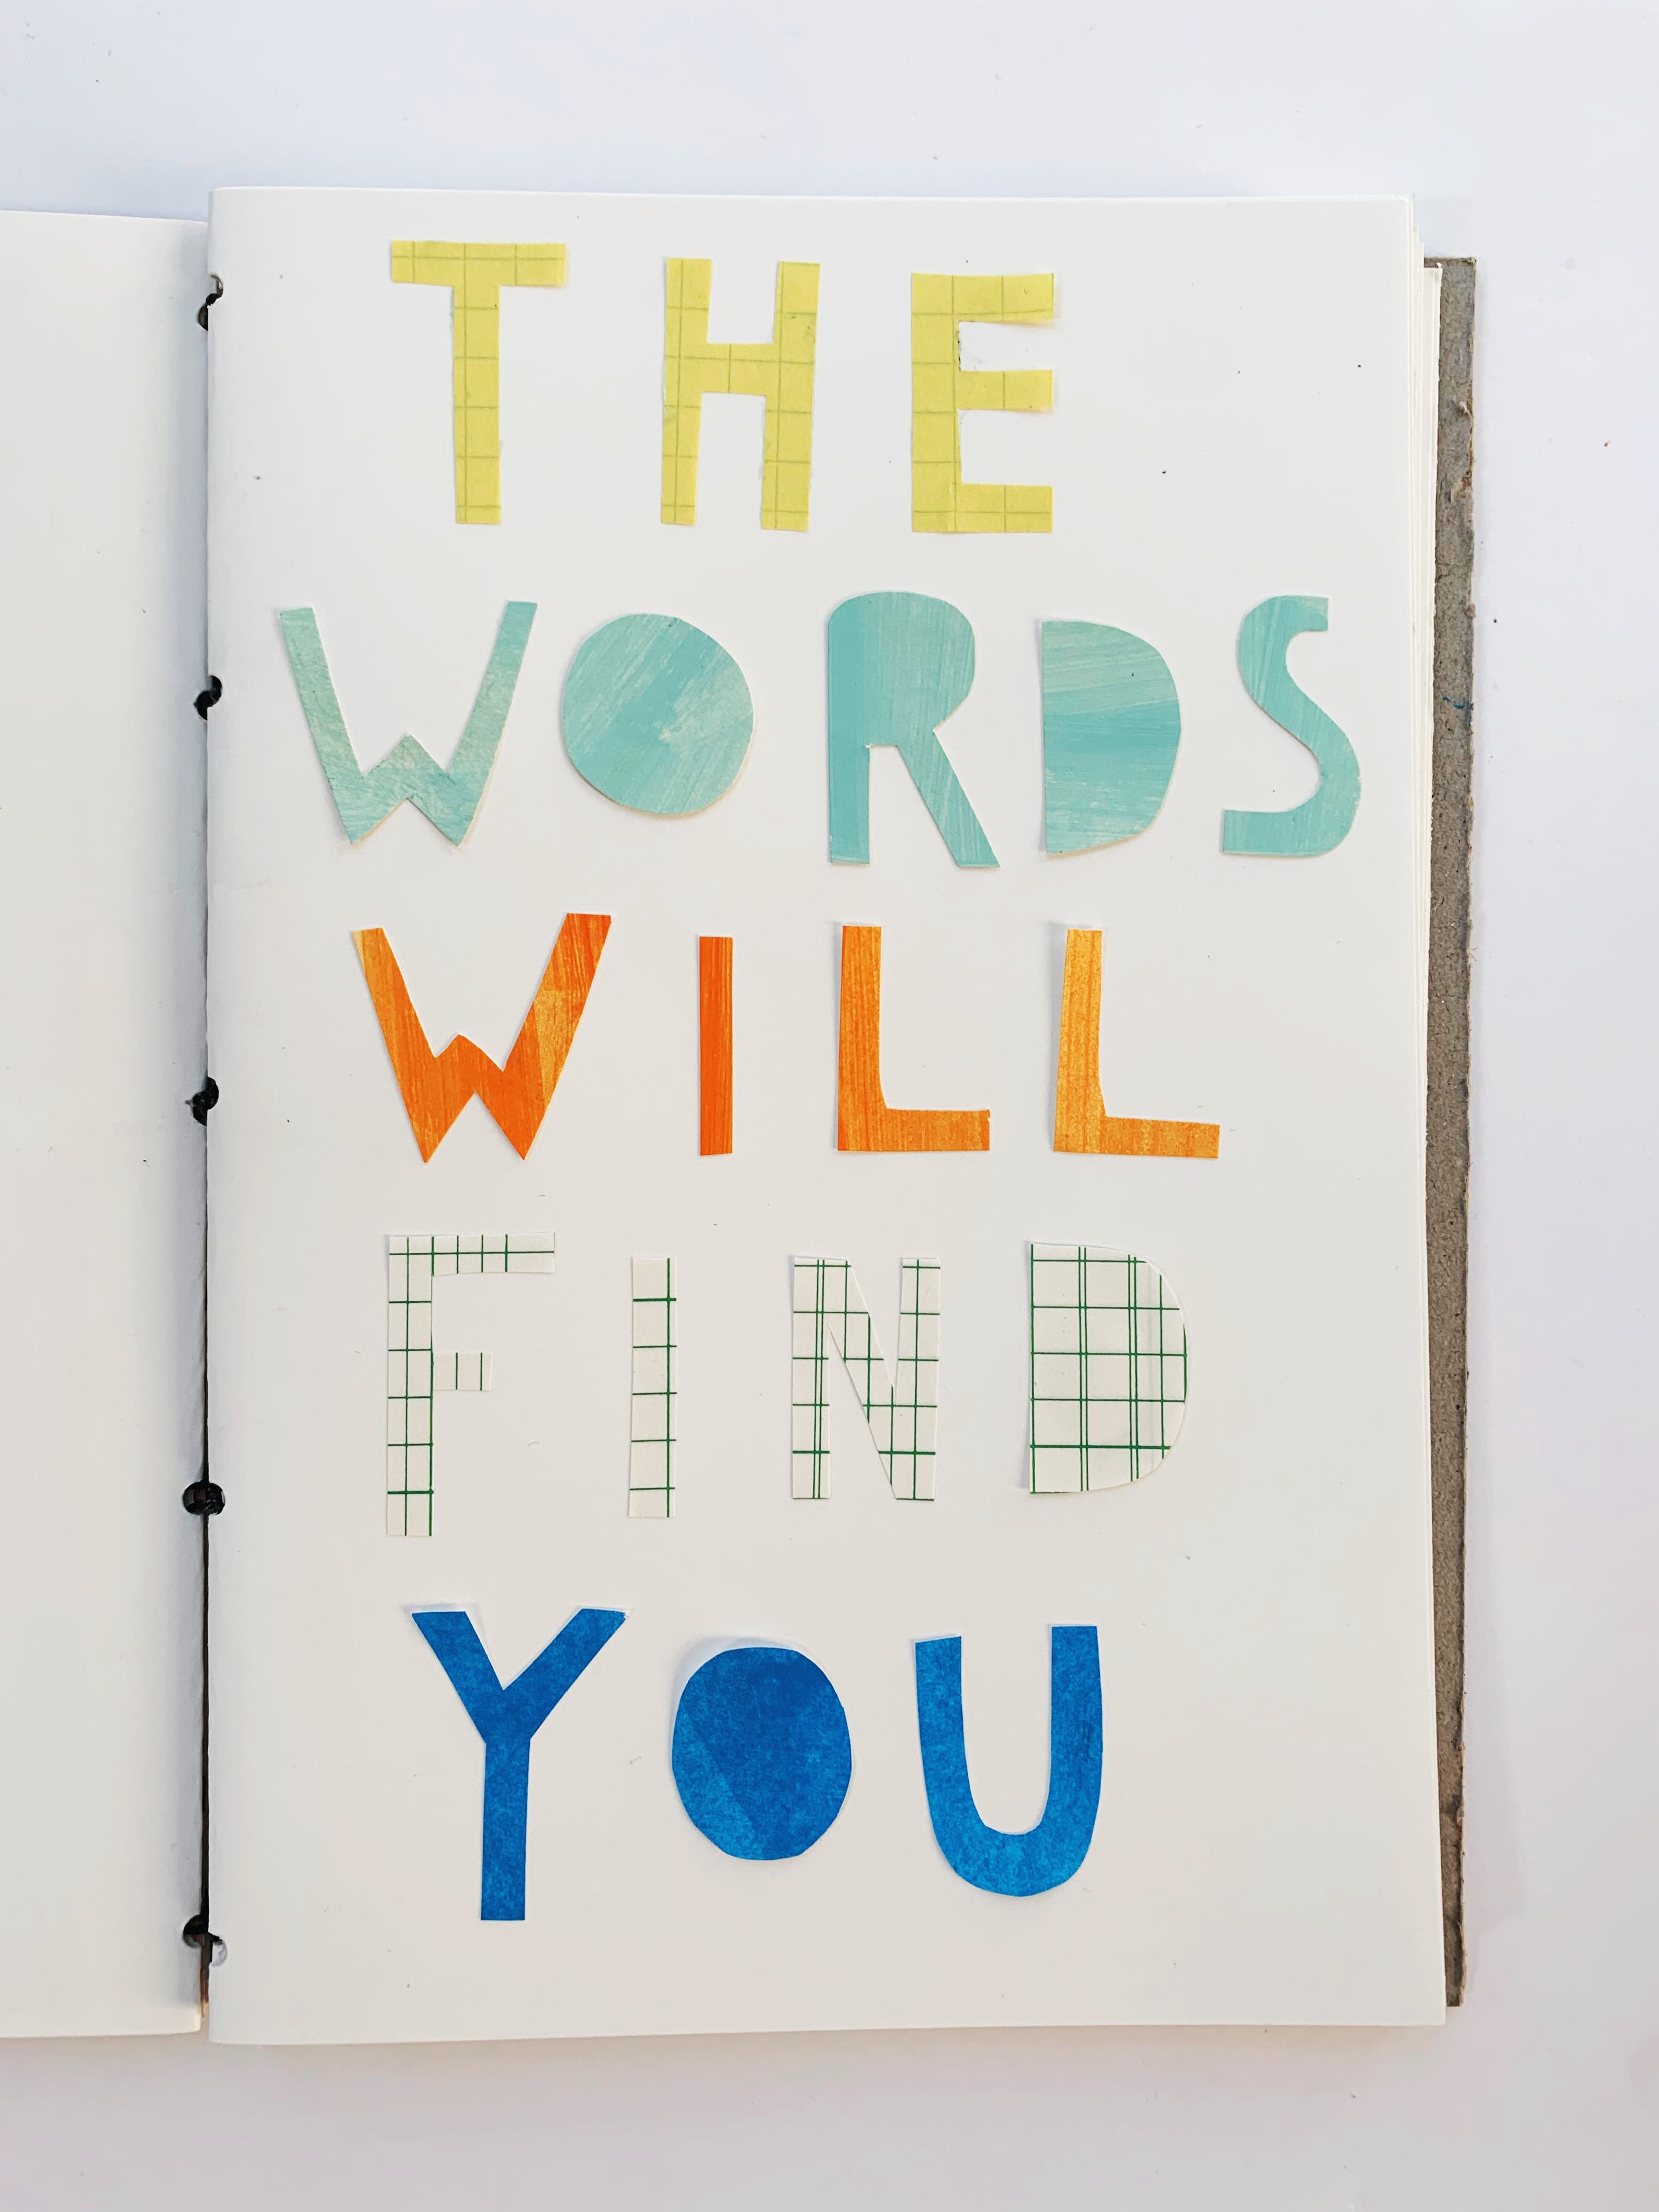 THE
WORDS
WILL
FIND
YOU